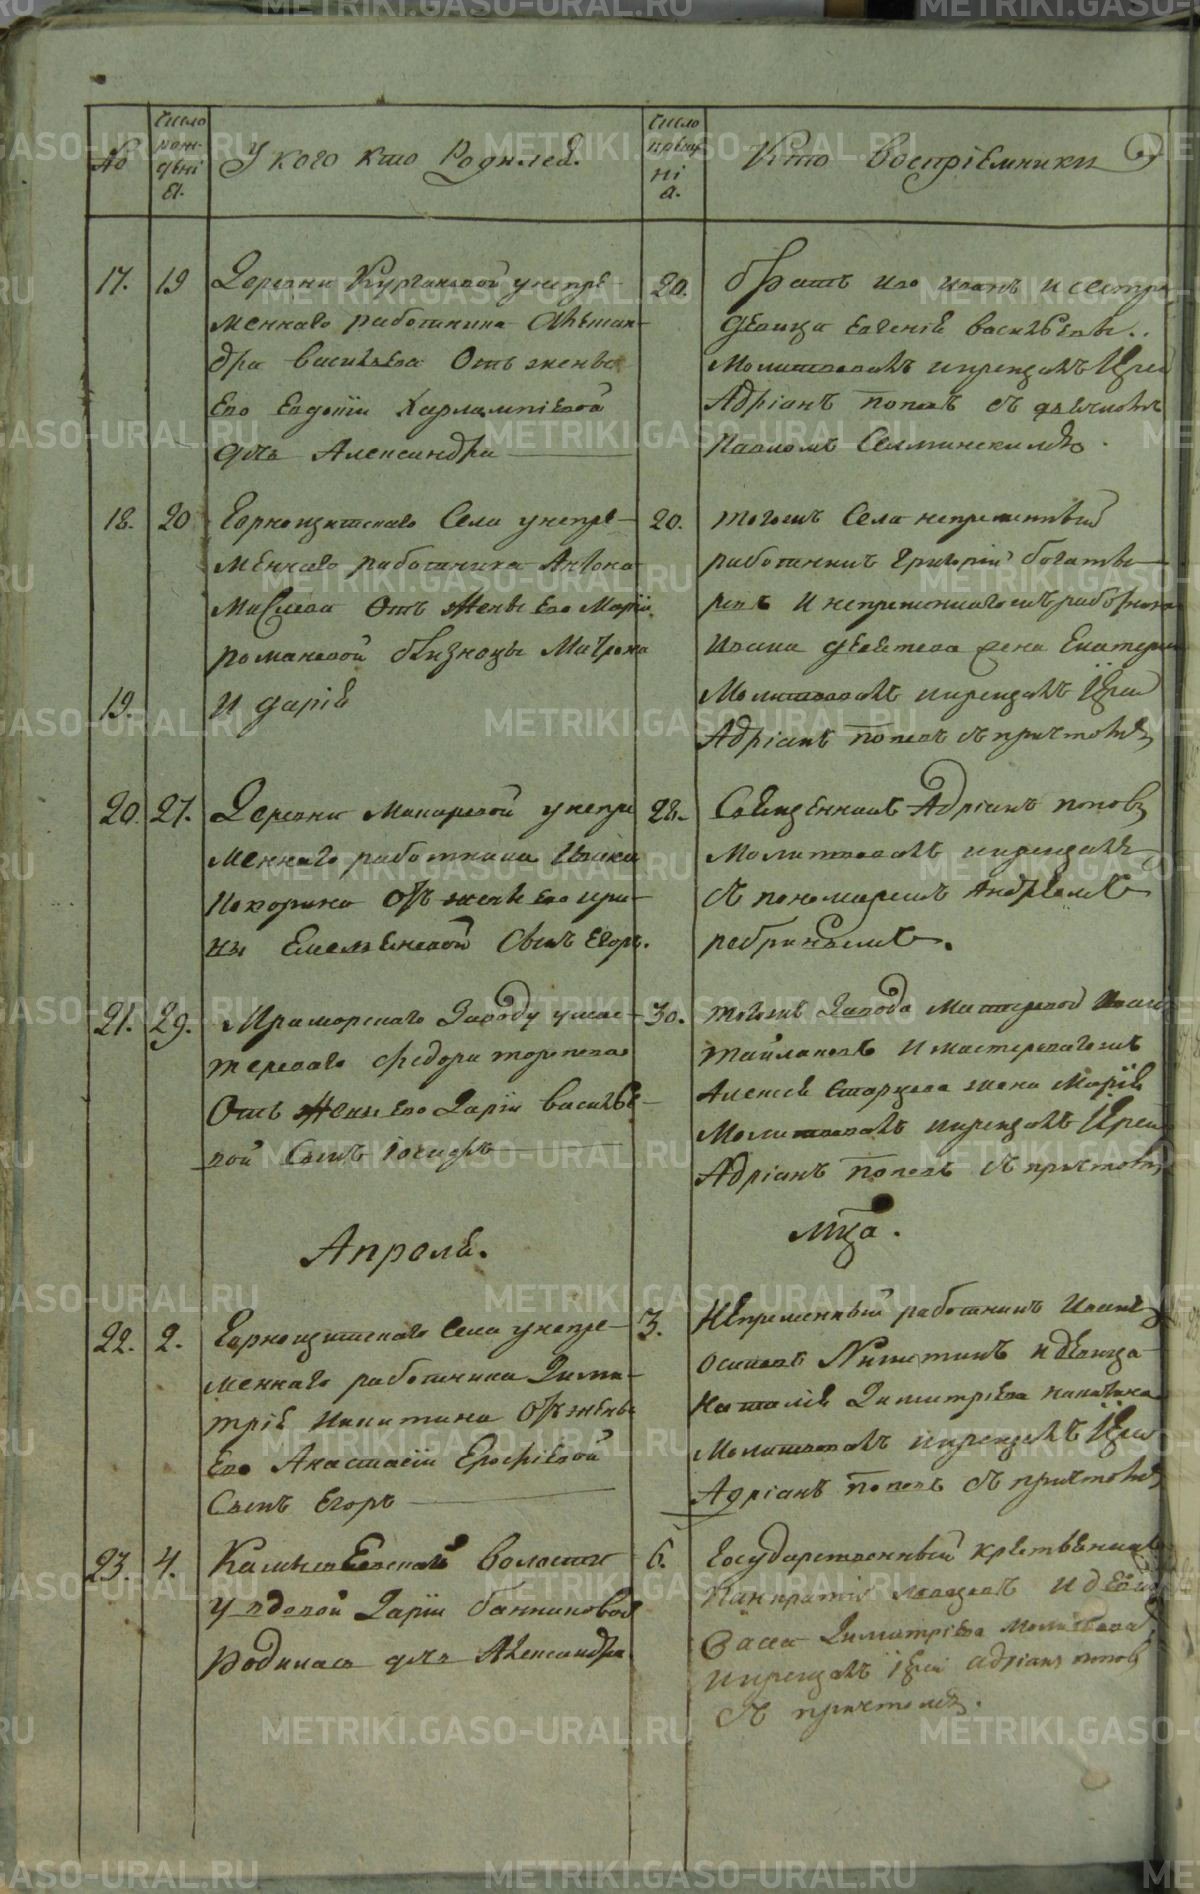 №
Число рожденіа.
У кого кто Родился.
Число крещеніа.
Кто воспріемники
17. 19
Деревни Кургановой у непре-
меннаго работника Алѣксан-
дра васильева Отъ жены
Его Евдокіи Харлампіевой
дчь Александра
20.
братъ Иво иванъ и сестра
девица Евгеніѣ васильевы..
Молитвовалъ икрещалъ Іерей
Адріанъ поповъ съ дьячкомъ
Павломъ
18. 20
Горнощитскаго Села у непре-
меннаго работника Антона
отъ жены Его Маріи
романовой близнецы Матрона
19.
и даріѣ
20.
тогожъ Села непремѣнный
работникъ Григорій богаты-
ревъ и непременнагожъ работника
Ивана жена Екатерина
Молитвовалъ икрещалъ Іерей
Адріанъ поповъ съ причтомъ
20. 27.
Деревни Макаровой у непре
меннаго работника
отъ жены Его ири-
ны Емельяновой Сынъ Егоръ.
28.
Священникъ Адріанъ поповъ
Молитвовалъ икрещалъ
съ пономаремъ Андреемъ
ребринымъ.
21. 29.
Мраморскаго Заводу у мас-
тероваго Федора торопова
Отъ жены Его Даріи василье-
вой Сынъ Іосифъ
30.
тогожъ Завода Мастеровой
и мастеровагожъ
Алексѣя Старцева жена Маріѣ
Молитвовалъ икрещалъ Іерей
Адріанъ поповъ съ причтомъ
Апрель. Мца.
22. 2.
Горнощитскаго Села у непре-
меннаго работника Дими-
тріѣ Никитина отъ жены
Его Анастасіи Ерофіевой
Сынъ Егоръ
3.
Непременный работникъ Иванъ
осиповъ Никитинъ и девица
Наталіѣ Димитріева Никитина
Молитвовалъ икрещалъ Іерей
Адріанъ поповъ съ причтомъ
23. 4.
волости
у вдовой Даріи банниковой
родилась дчь Александра
6.
Государственный крестьянинъ
Панкратій и девица
Васса Димитріева Молитвовалъ
икрещалъ Іерей адріанъ поповъ
съ причтомъ.
METRIKI.GASO-URAL.RU